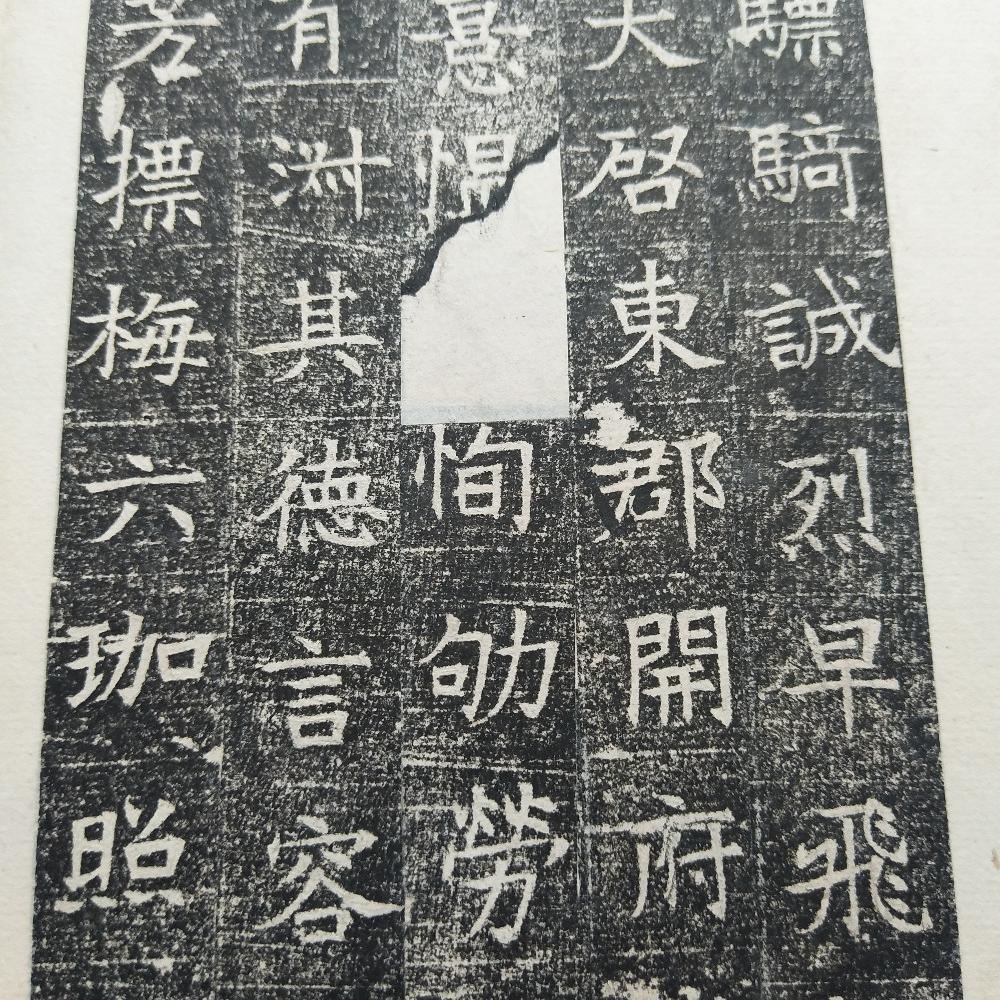 驃騎誠烈早飛
大啓東郡開府
恂劬勞
有淵其德言容
芳摽梅六珈照